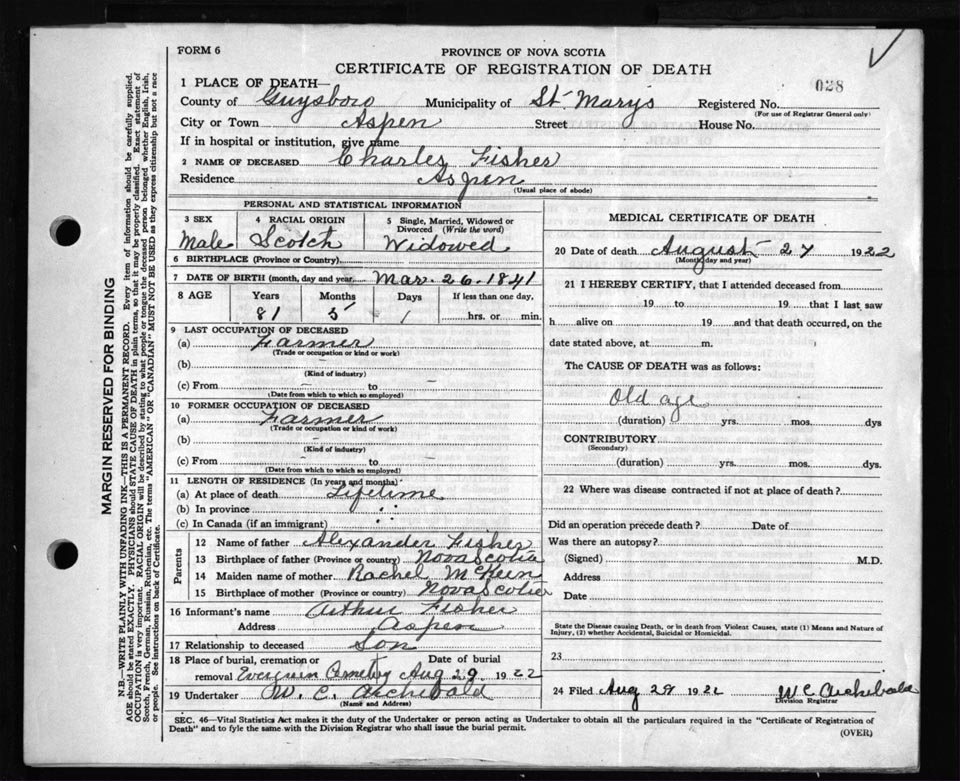 FORM 6
PROVINCE OF NOVA SCOTIA
CERTIFICATE OF REGISTRATION OF DEATH
028
1 PLACE OF DEATH—
County of Guysboro Municipality of St Mary's Registered No.
(For use of Registrar General only)
City or Town Aspen Street House No.
If in hospital or institution, give name
2 NAME OF DECEASED Charles Fisher
Residence Aspen
(Usual place of abode)
PERSONAL AND STATISTICAL INFORMATION
3 SEX Male
4 RACIAL ORIGIN Scotch
5 Single, Married, Widowed or Divorced (Write the word) Widowed
6 BIRTHPLACE (Province or Country)
7 DATE OF BIRTH (month, day and year) Mar. 26. 1841
8 AGE Years Months Days If less than one day,
81 5 1 hrs. or min.
9 LAST OCCUPATION OF DECEASED
(a) Farmer
(Trade or occupation or kind or work)
(b)
(Kind of industry)
(c) From – to –
(Date from which to which so employed)
10 FORMER OCCUPATION OF DECEASED
(a) Farmer
(Trade or occupation or kind of work)
(b) –
(Kind of industry)
(c) From – to –
(Date from which to which so employed)
11 LENGTH OF RESIDENCE (In years and months)
(a) At place of death Lifetime
(b) In province "
(c) In Canada (if an immigrant)
Parents
12 Name of father Alexander Fisher
13 Birthplace of father (Province or country) Nova Scotia
14 Maiden name of mother Rachel McKeen
15 Birthplace of mother (Province or country) Nova Scotia
16 Informant's name Arthur Fisher
Address Aspen
17 Relationship to deceased Son
18 Place of burial, cremation or removal Evergreen Cemetery Date of burial Aug 29 1922
19 Undertaker W. C. Archibald
(Name and Address)
MEDICAL CERTIFICATE OF DEATH
20 Date of death August 27 1922
(Month, day and year)
21 I HEREBY CERTIFY, that I attended deceased from
19 to 19 that I last saw
h alive on 19 and that death occurred, on the
date stated above, at m.
The CAUSE OF DEATH was as follows:
Old age
(duration) yrs. mos. dys
CONTRIBUTORY
(Secondary)
(duration) yrs. mos. dys.
22 Where was disease contracted if not at place of death?
Did an operation precede death? Date of
Was there an autopsy?
(Signed) M.D.
Address
Date
State the Disease causing Death, or in death from Violent Causes, state (1) Means and Nature of
Injury, (2) whether Accidental, Suicidal or Homicidal.
23
24 Filed Aug 29 1922 W C Archibald
Division Registrar
SEC. 46—Vital Statistics Act makes it the duty of the Undertaker or person acting as Undertaker to obtain all the particulars required in the "Certificate of Registration of
Death" and to fyle the same with the Division Registrar who shall issue the burial permit.
(OVER)
MARGIN RESERVED FOR BINDING
N.B.—WRITE PLAINLY WITH UNFADING INK—THIS IS A PERMANENT RECORD. Every item of information should be carefully supplied.
AGE should be stated EXACTLY. PHYSICIANS should STATE CAUSE OF DEATH in plain terms, so that it may be properly classified. Exact statement of
OCCUPATION is very important. RACIAL ORIGIN will be described by stating to what people or tongue the deceased person belonged whether English, Irish,
Scotch, French, German, Russian, Ruthenian, etc. The terms "AMERICAN" or "CANADIAN" MUST NOT BE USED as they express citizenship but not a race
or people. See instructions on back of Certificate.